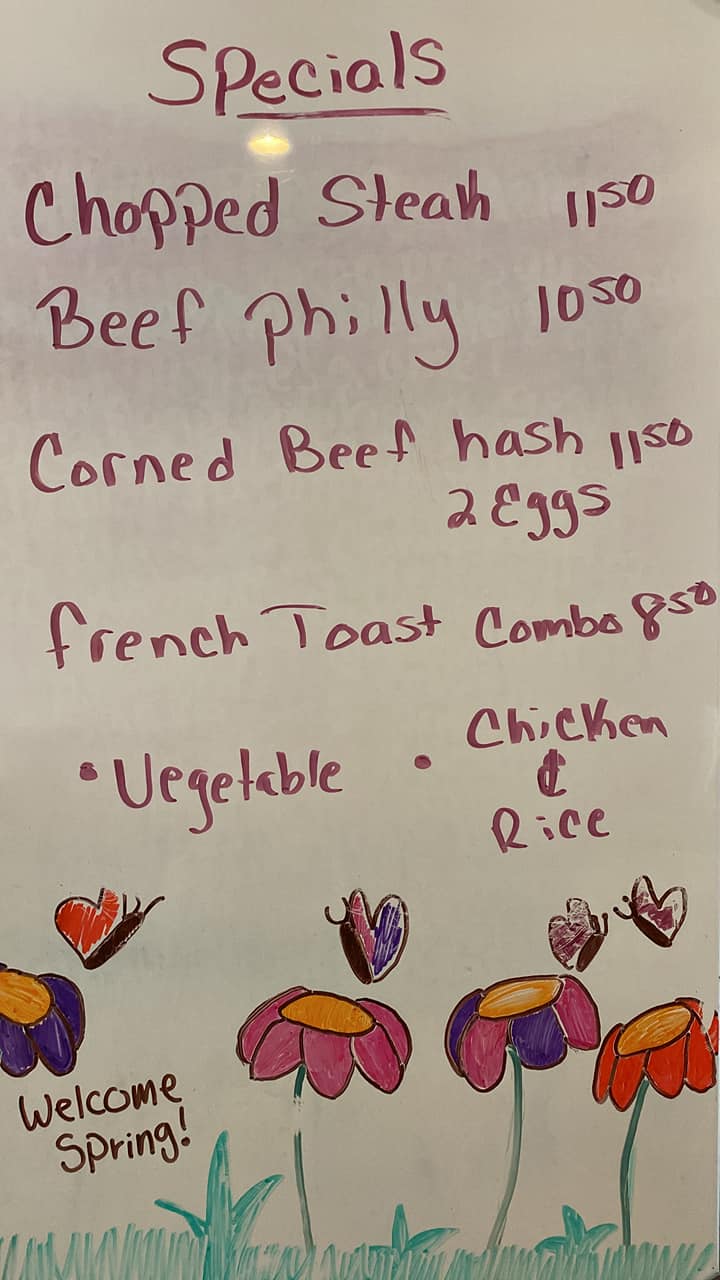 Specials
Chopped Steak 11 50
Beef Philly 10 50
Corned Beef hash 11 50
2 Eggs
French Toast Combo 8 50
• Vegetable • Chicken
&
Rice
Welcome
Spring!